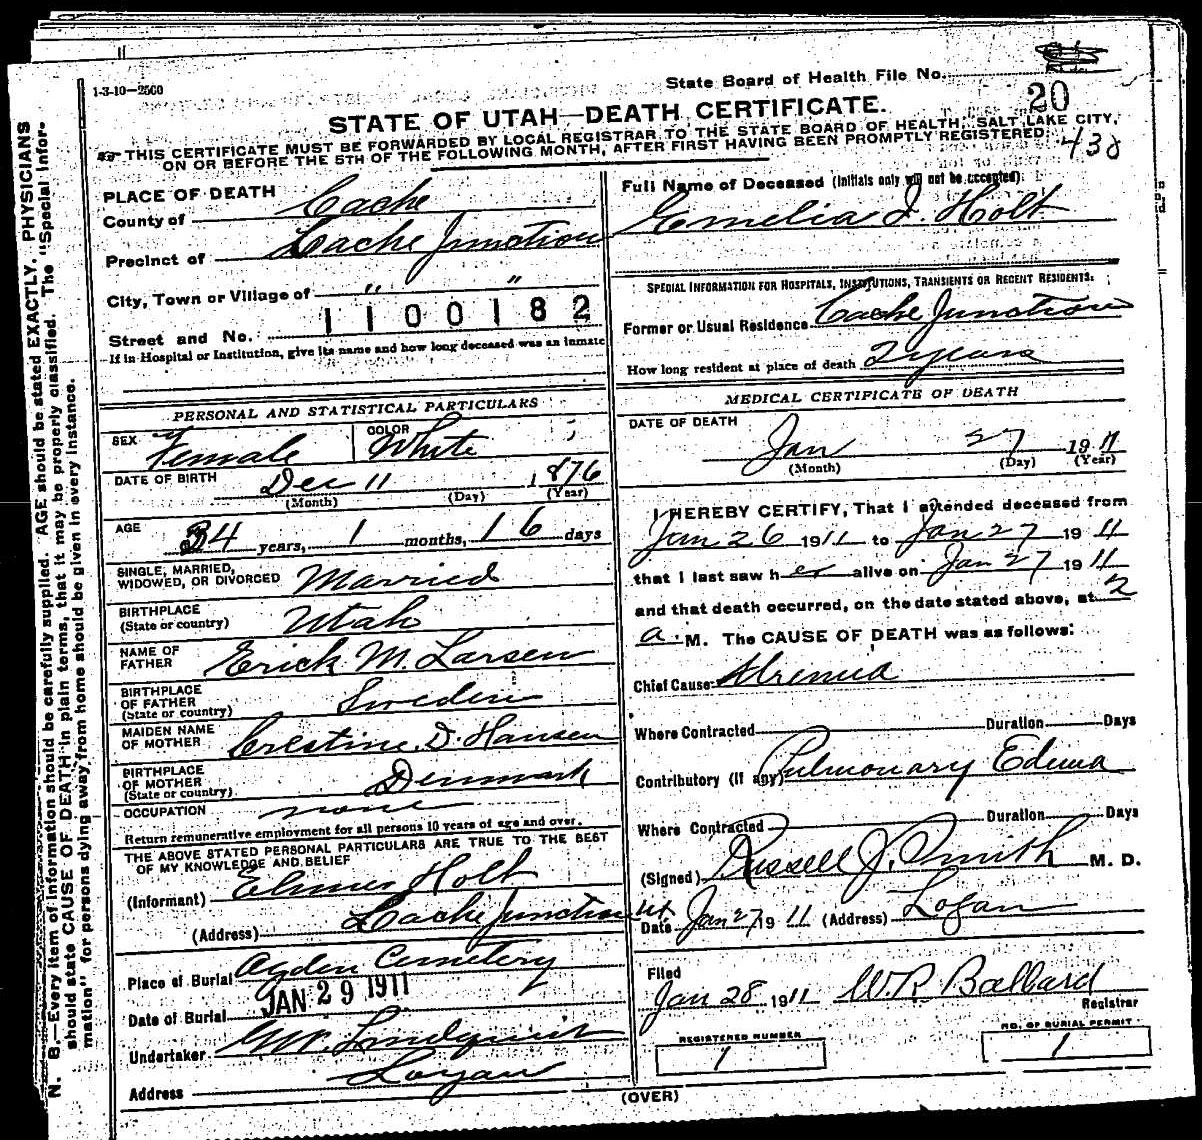 1-3-10—2500
State Board of Health File No.
20
STATE OF UTAH—DEATH CERTIFICATE.
438
THIS CERTIFICATE MUST BE FORWARDED BY LOCAL REGISTRAR TO THE STATE BOARD OF HEALTH, SALT LAKE CITY,
ON OR BEFORE THE 5TH OF THE FOLLOWING MONTH, AFTER FIRST HAVING BEEN PROMPTLY REGISTERED.
N. B.—Every item of information should be carefully supplied. AGE should be stated EXACTLY. PHYSICIANS
should state CAUSE OF DEATH in plain terms, that it may be properly classified. The "Special Infor-
mation" for persons dying away from home should be given in every instance.
PLACE OF DEATH
County of Cache
Precinct of Cache Junction
City, Town or Village of " "
Street and No. 1100182
If in Hospital or Institution, give its name and how long deceased was an inmate
PERSONAL AND STATISTICAL PARTICULARS
SEX Female COLOR White
DATE OF BIRTH Dec 11 1876
(Month) (Day) (Year)
AGE 34 years, 1 months, 16 days
SINGLE, MARRIED,
WIDOWED, OR DIVORCED Married
BIRTHPLACE
(State or country) Utah
NAME OF
FATHER Erick M. Larsen
BIRTHPLACE
OF FATHER
(State or country) Sweden
MAIDEN NAME
OF MOTHER Crestine D. Hansen
BIRTHPLACE
OF MOTHER
(State or country) Denmark
OCCUPATION none
Return remunerative employment for all persons 10 years of age and over.
THE ABOVE STATED PERSONAL PARTICULARS ARE TRUE TO THE BEST
OF MY KNOWLEDGE AND BELIEF
(Informant) Elmer Holt
(Address) Cache Junction Ut
Place of Burial Ogden Cemetery
Date of Burial JAN 29 1911
Undertaker Lindquist
Address Logan
Full Name of Deceased (Initials only will not be accepted)
Emelia J. Holt
SPECIAL INFORMATION FOR HOSPITALS, INSTITUTIONS, TRANSIENTS OR RECENT RESIDENTS.
Former or Usual Residence Cache Junction
How long resident at place of death 2 years
MEDICAL CERTIFICATE OF DEATH
DATE OF DEATH
Jan 27 1911
(Month) (Day) (Year)
I HEREBY CERTIFY, That I attended deceased from
Jan 26 1911 to Jan 27 1911
that I last saw her alive on Jan 27 1911
and that death occurred, on the date stated above, at 2
a. M. The CAUSE OF DEATH was as follows:
Chief Cause Uremia
Where Contracted Duration Days
Contributory (If any) Pulmonary Edema
Where Contracted Duration Days
(Signed) Russell J. Smith M. D.
Date Jan 27 1911 (Address) Logan
Filed
Jan 28 1911 W. R. Ballard
Registrar
REGISTERED NUMBER
1
NO. OF BURIAL PERMIT
1
(OVER)